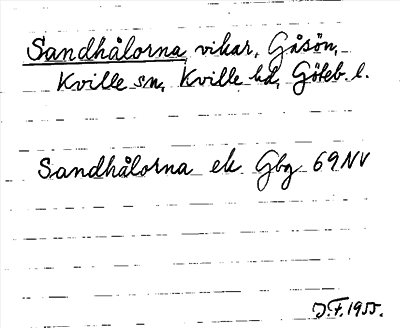 Sandhålorna, vikar, Gåsön,
Kville sn, Kville hd, Göteb. l.
Sandhålorna ek Gbg 69NV
J.F. 1955.